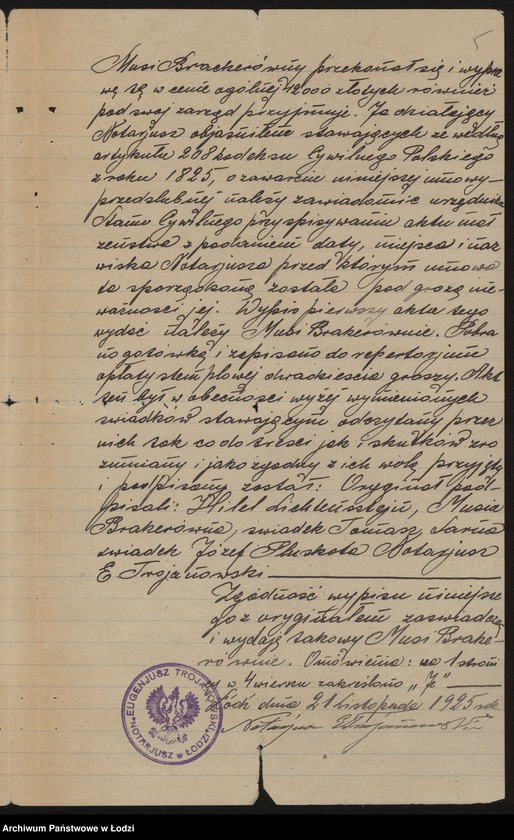 5
Musi Brackerówny przekonał się i wypra-
wę tę w cenie ogólnej 12000 złotych również
pod swój zarząd przyjmuje. Ja działający
Notarjusz objaśniłem stawających że według
artykułu 208 kodeksu Cywilnego Polskiego
z roku 1825, o zawarciu niniejszej umowy
przedślubnej należy zawiadomić urzędnika
Stanu Cywilnego przy spisywaniu aktu mał
żeństwa z podaniem daty, miejsca i naz
wiska Notarjusza przed którym umowa
ta sporządzoną została pod grozą nie-
ważności jej. Wypis pierwszy aktu tego
wydać należy Musi Brakerównie. Pobra
no gotówką i zapisano do repertorjum
opłaty stemplowej dwadzieścia groszy. Akt
ten był w obecności wyżej wymienionych
świadków stawającym odczytany przez
nich tak co do treści jak i skutków zro
zumiany i jako zgodny z ich wolą przyjęty
i podpisany został: Oryginał pod
pisali: Hilel Lichtensztejn, Musia
Brakerówna, świadek Tomasz
świadek Józef Pluskota Notarjusz
E Trojanowski
Zgodność wypisu niniejsze
go z oryginałem zaświadczam
i wydaję takowy Musi Brake
równie. Omówienie: na 1 stron
y w 4 wierszu zakreślono „Je"
Łódź dnia 21 listopada 1925 rok
Notarjusz ETrojanowski
EUGENJUSZ TROJANOWSKI
NOTARJUSZ w ŁODZI
Archiwum Państwowe w Łodzi